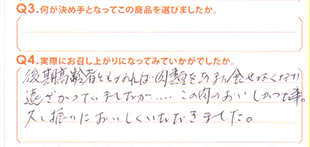 Q3.何が決め手となってこの商品を選びましたか。
Q4.実際にお召し上がりになってみていかがでしたか。
後期高齢者ともなれば肉類をあまり食せなくなり
遠ざかっていましたが.....この肉のおいしかった事。
久し振りにおいしくいただきました。